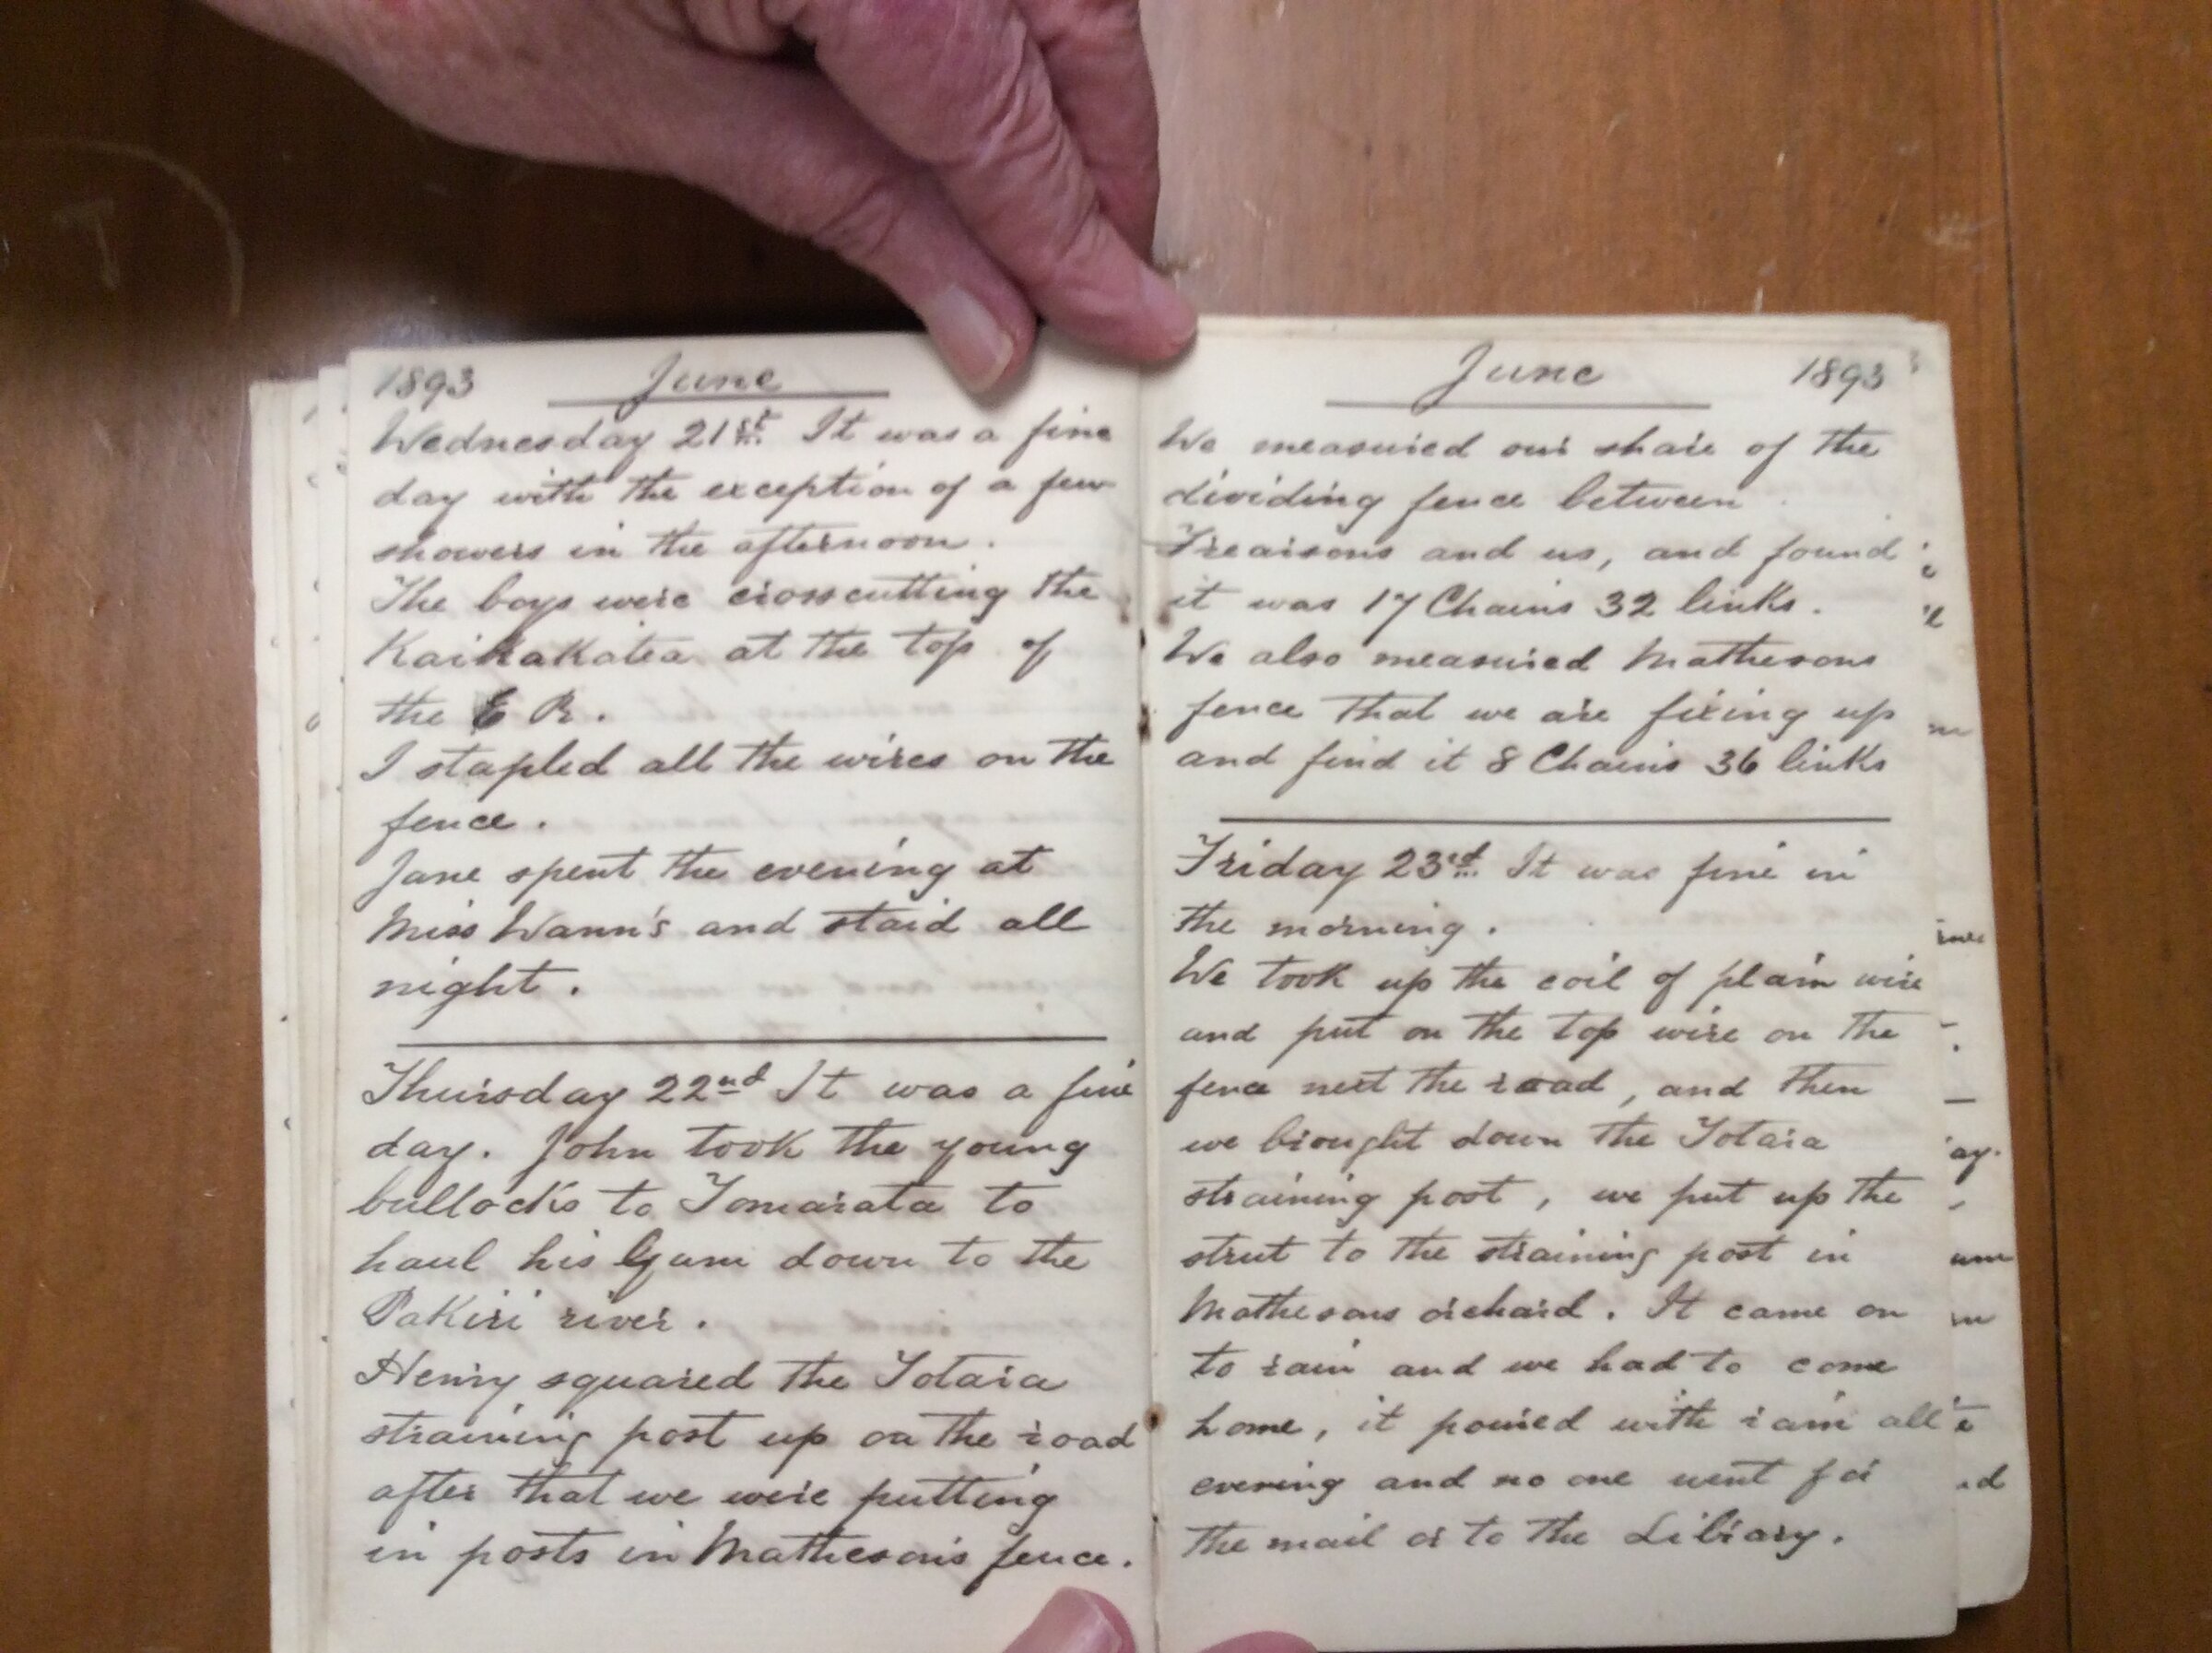 1893 June
Wednesday 21st. It was a fine
day with the exception of a few
showers in the afternoon.
The boys were crosscutting the
Kaikakatea at the top of
the E R.
I stapled all the wires on the
fence.
Jane spent the evening at
Miss Wann's and staid all
night.
Thursday 22nd It was a fine
day. John took the young
bullocks to Tomarata to
haul his Gum down to the
Pakiri river.
Henry squared the Totara
straining post up on the road
after that we were putting
in posts in Matheson's fence.
June 1893
We measured our share of the
dividing fence between
and us, and found
it was 17 Chains 32 links.
We also measured Mathesons
fence that we are fixing up
and find it 8 Chains 36 links
Friday 23rd. It was fine in
the morning.
We took up the coil of plain wire
and put on the top wire on the
fence next the road, and then
we brought down the Totara
straining post, we put up the
strut to the straining post in
Mathesons orchard. It came on
to rain and we had to come
home, it poured with rain all
evening and no one went for
the mail or to the Library.